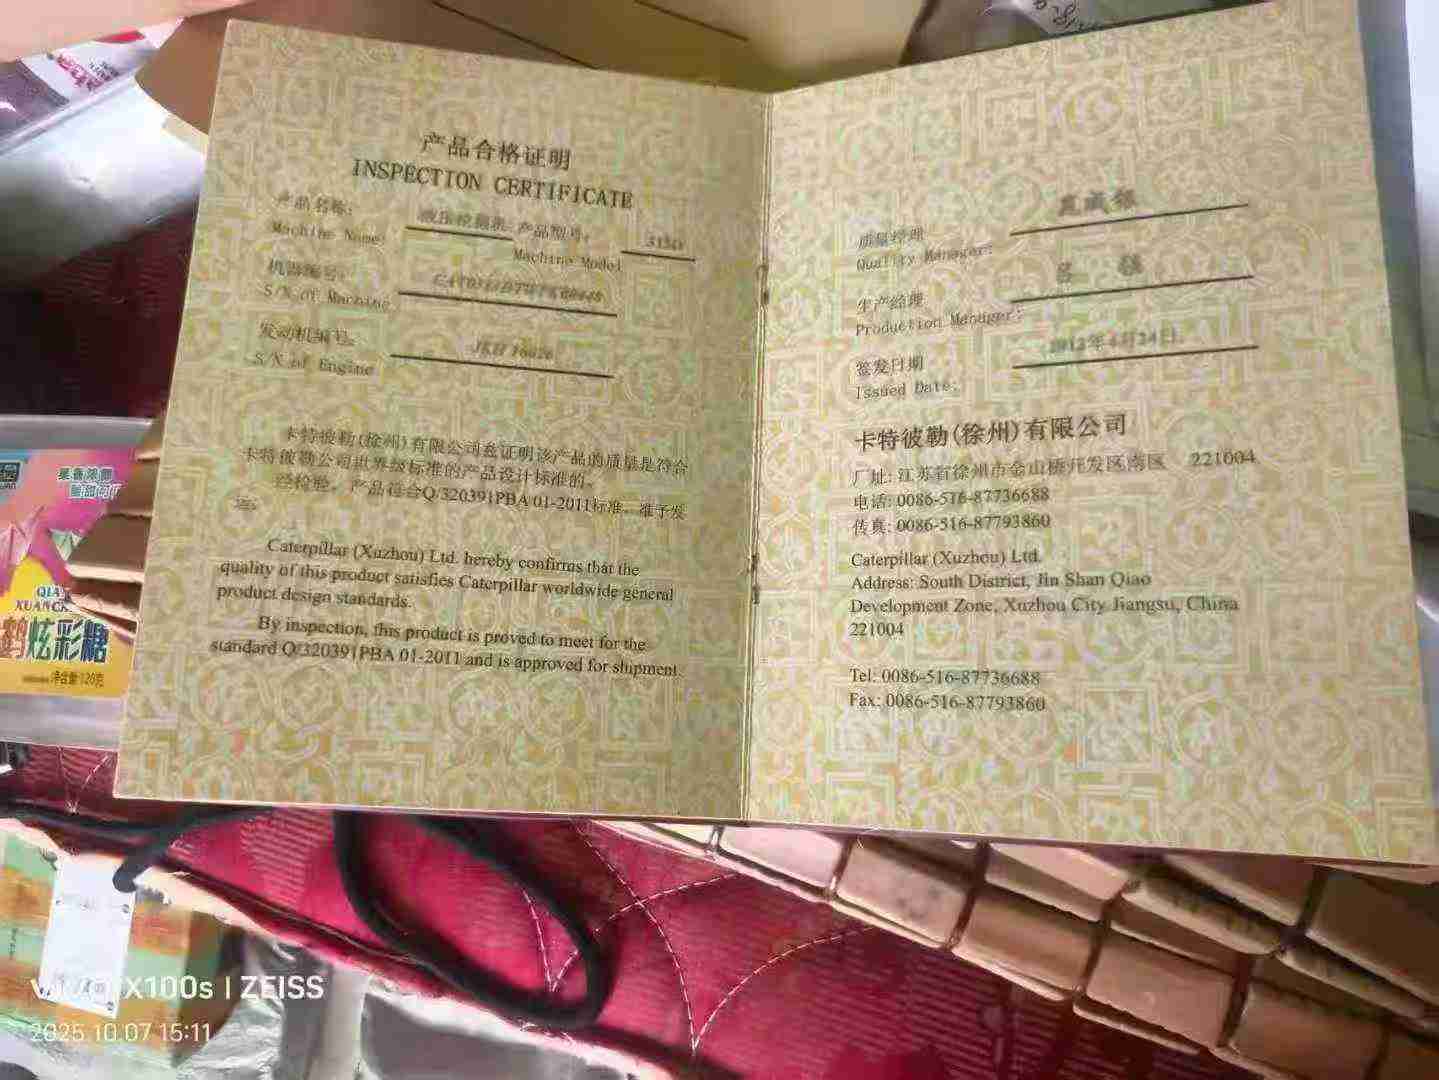 产品合格证明
INSPECTION CERTIFICATE
产品名称:
液压挖掘机 产品型号:
Machine Name:
Machine Model
机器编号:
S/N of Machine
发动机编号:
S/N of Engine
卡特彼勒(徐州)有限公司兹证明该产品的质量是符合
卡特彼勒公司世界级标准的产品设计标准的。
经检验，产品符合Q/320391PBA 01-2011标准，准予发
Caterpillar (Xuzhou) Ltd. hereby confirms that the
quality of this product satisfies Caterpillar worldwide general
product design standards.
By inspection, this product is proved to meet for the
standard Q/320391PBA 01-2011 and is approved for shipment.
质量经理
Quality Manager:
生产经理
Production Manager:
2012年4月24日
签发日期
Issued Date:
卡特彼勒(徐州)有限公司
厂址: 江苏省徐州市金山桥开发区南区 221004
电话: 0086-516-87736688
传真: 0086-516-87793860
Caterpillar (Xuzhou) Ltd.
Address: South District, Jin Shan Qiao
Development Zone, Xuzhou City Jiangsu, China
221004
Tel: 0086-516-87736688
Fax: 0086-516-87793860
QIA
XUANC
鹤炫彩糖
净含量:120克
X100s | ZEISS
2025.10.07 15:11